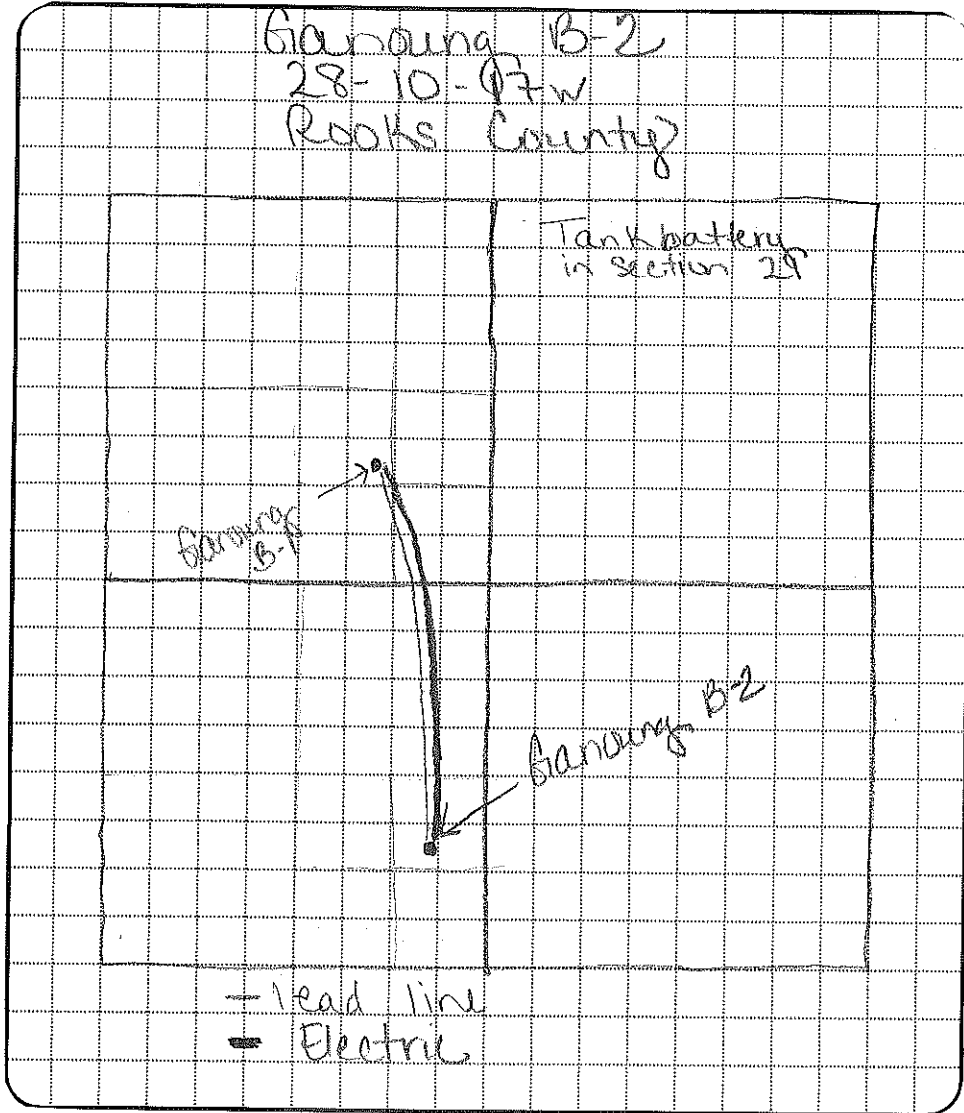 Ganoung B-2
28-10-17w
Rooks County
Tank battery
in section 29
Ganoung
B-1
Ganoung B-2
– lead line
– Electric